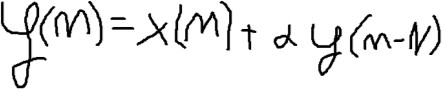 y(n) = x(n) + α y(n-N)